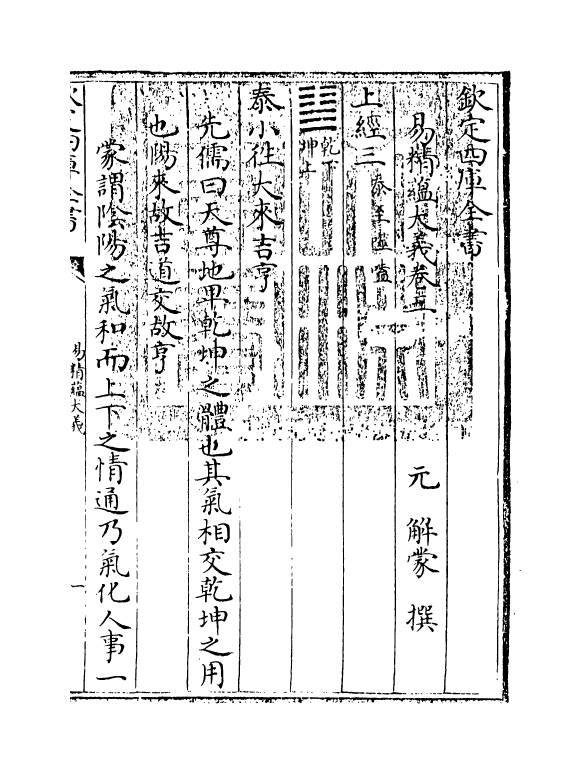 欽定四庫全書
易精蘊大義卷三　元　解蒙　撰
上經三　泰至噬嗑
乾下
坤上
泰小往大來吉亨
先儒曰天尊地卑乾坤之體也其氣相交乾坤之用
也陽來故吉道交故亨
蒙謂陰陽之氣和而上下之情通乃氣化人事一
易精蘊大義
一